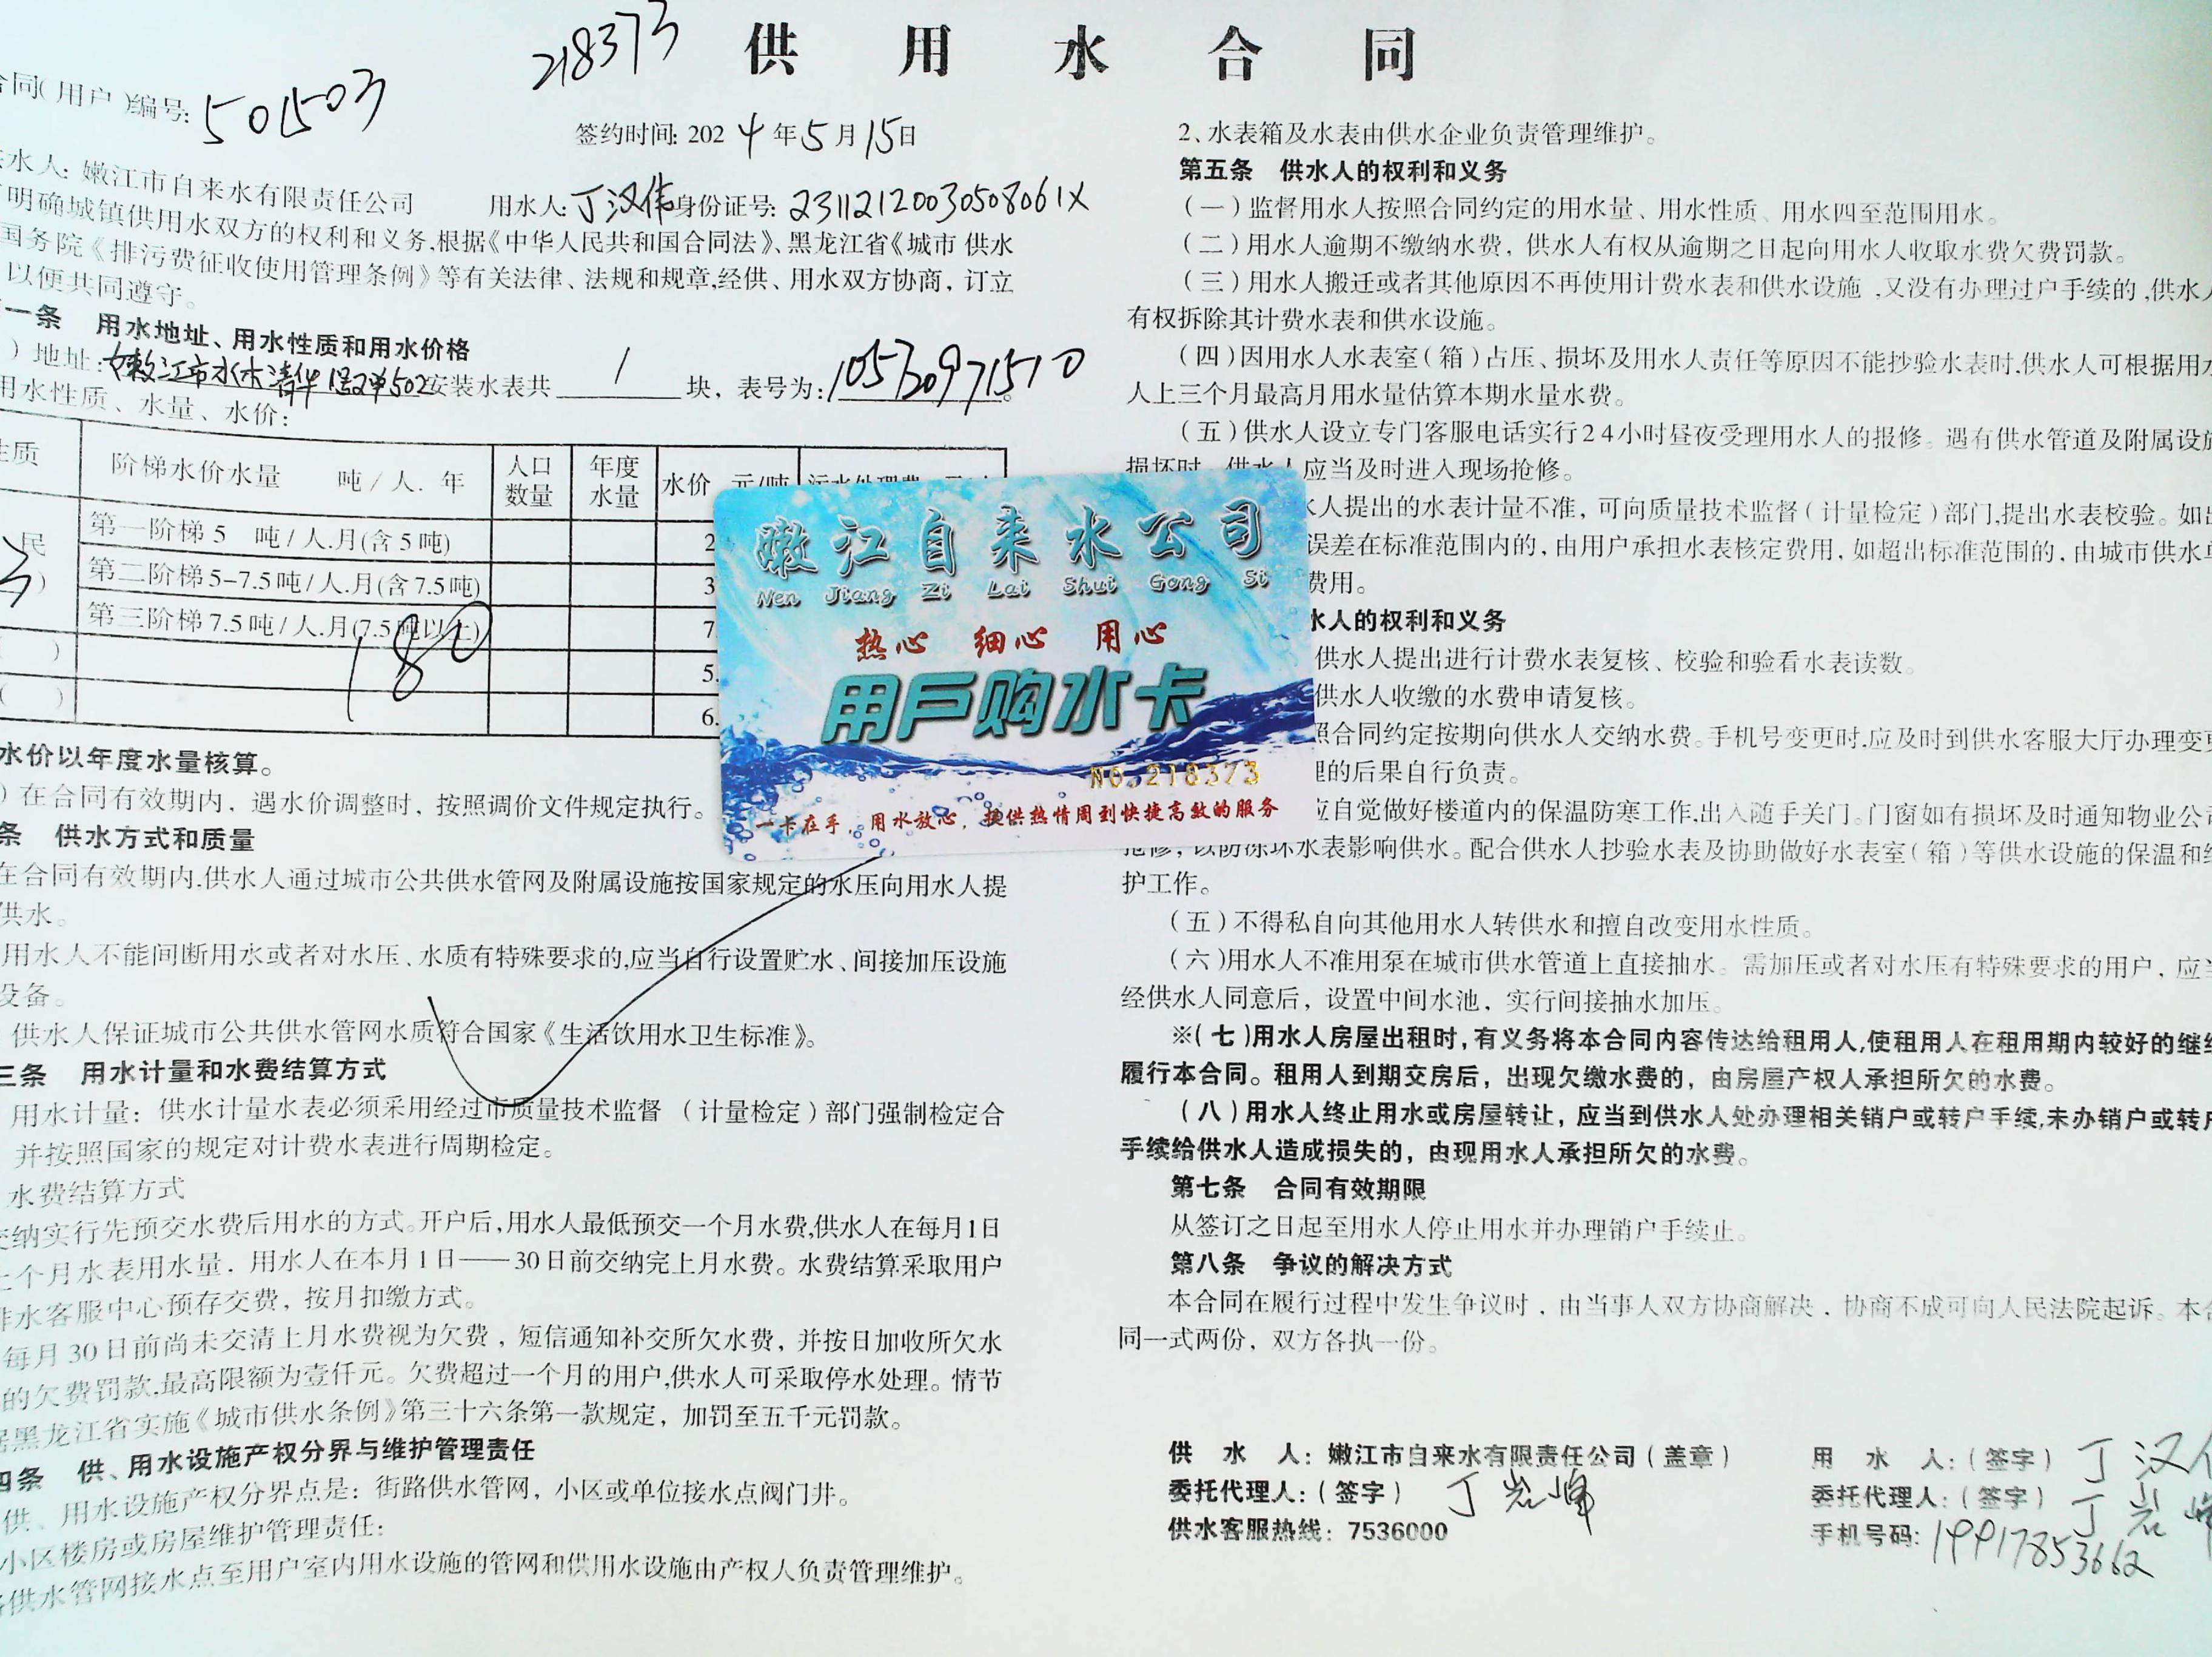 218373
供用水合同
合同(用户)编号: 501503
签约时间: 2024年5月15日
供水人: 嫩江市自来水有限责任公司 用水人: 丁汉伟 身份证号: 23112120030508061X
明确城镇供用水双方的权利和义务,根据《中华人民共和国合同法》、黑龙江省《城市 供水
国务院《排污费征收使用管理条例》等有关法律、法规和规章,经供、用水双方协商，订立
以便共同遵守。
一条 用水地址、用水性质和用水价格
)地址: 嫩江市水木清华 502安装水表共 1 块，表号为:
用水性质、水量、水价:
性质 阶梯水价水量 吨/人.年 人口数量 年度水量 水价 元/吨
民 第一阶梯 5 吨/人.月(含5吨) 2
3
) 第二阶梯 5-7.5吨/人.月(含7.5吨) 3
第三阶梯 7.5吨/人.月(7.5吨以上) 7
180
( ) 5.
( ) 6.
水价以年度水量核算。
)在合同有效期内，遇水价调整时，按照调价文件规定执行。
条 供水方式和质量
在合同有效期内,供水人通过城市公共供水管网及附属设施按国家规定的水压向用水人提
供水。
用水人不能间断用水或者对水压、水质有特殊要求的,应当自行设置贮水、间接加压设施
设备。
供水人保证城市公共供水管网水质符合国家《生活饮用水卫生标准》。
三条 用水计量和水费结算方式
用水计量：供水计量水表必须采用经过市质量技术监督 （计量检定）部门强制检定合
并按照国家的规定对计费水表进行周期检定。
水费结算方式
交纳实行先预交水费后用水的方式。开户后,用水人最低预交一个月水费,供水人在每月1日
上个月水表用水量．用水人在本月1日——30日前交纳完上月水费。水费结算采取用户
排水客服中心预存交费，按月扣缴方式。
每月30日前尚未交清上月水费视为欠费，短信通知补交所欠水费，并按日加收所欠水
的欠费罚款,最高限额为壹仟元。欠费超过一个月的用户,供水人可采取停水处理。情节
据黑龙江省实施《城市供水条例》第三十六条第一款规定，加罚至五千元罚款。
四条 供、用水设施产权分界与维护管理责任
供、用水设施产权分界点是：街路供水管网，小区或单位接水点阀门井。
小区楼房或房屋维护管理责任：
供水管网接水点至用户室内用水设施的管网和供用水设施由产权人负责管理维护。
2、水表箱及水表由供水企业负责管理维护。
第五条 供水人的权利和义务
（一）监督用水人按照合同约定的用水量、用水性质、用水四至范围用水。
（二）用水人逾期不缴纳水费，供水人有权从逾期之日起向用水人收取水费欠费罚款。
（三）用水人搬迁或者其他原因不再使用计费水表和供水设施，又没有办理过户手续的,供水人
有权拆除其计费水表和供水设施。
（四）因用水人水表室（箱）占压、损坏及用水人责任等原因不能抄验水表时,供水人可根据用水
人上三个月最高月用水量估算本期水量水费。
（五）供水人设立专门客服电话实行24小时昼夜受理用水人的报修。遇有供水管道及附属设施
损坏时，供水人应当及时进入现场抢修。
水人提出的水表计量不准，可向质量技术监督（计量检定）部门,提出水表校验。如出
误差在标准范围内的，由用户承担水表核定费用，如超出标准范围的，由城市供水单
费用。
水人的权利和义务
供水人提出进行计费水表复核、校验和验看水表读数。
供水人收缴的水费申请复核。
照合同约定按期向供水人交纳水费。手机号变更时,应及时到供水客服大厅办理变更
理的后果自行负责。
应自觉做好楼道内的保温防寒工作,出入随手关门。门窗如有损坏及时通知物业公司
抢修，以防冻坏水表影响供水。配合供水人抄验水表及协助做好水表室（箱）等供水设施的保温和维
护工作。
（五）不得私自向其他用水人转供水和擅自改变用水性质。
（六）用水人不准用泵在城市供水管道上直接抽水。需加压或者对水压有特殊要求的用户，应当
经供水人同意后，设置中间水池，实行间接抽水加压。
※（七）用水人房屋出租时,有义务将本合同内容传达给租用人,使租用人在租用期内较好的继续
履行本合同。租用人到期交房后，出现欠缴水费的，由房屋产权人承担所欠的水费。
（八）用水人终止用水或房屋转让，应当到供水人处办理相关销户或转户手续,未办销户或转户
手续给供水人造成损失的，由现用水人承担所欠的水费。
第七条 合同有效期限
从签订之日起至用水人停止用水并办理销户手续止。
第八条 争议的解决方式
本合同在履行过程中发生争议时，由当事人双方协商解决，协商不成可向人民法院起诉。本合
同一式两份，双方各执一份。
供 水 人：嫩江市自来水有限责任公司（盖章）
委托代理人：（签字） 丁岩峰
供水客服热线：7536000
用 水 人：（签字） 丁汉伟
委托代理人：（签字） 丁岩峰
手机号码: 19917853662
嫩江自来水公司
Nen Jiang Zi Lai Shui Gong Si
热心 细心 用心
用户购水卡
NO.218373
一卡在手，用水放心，提供热情周到快捷高效的服务